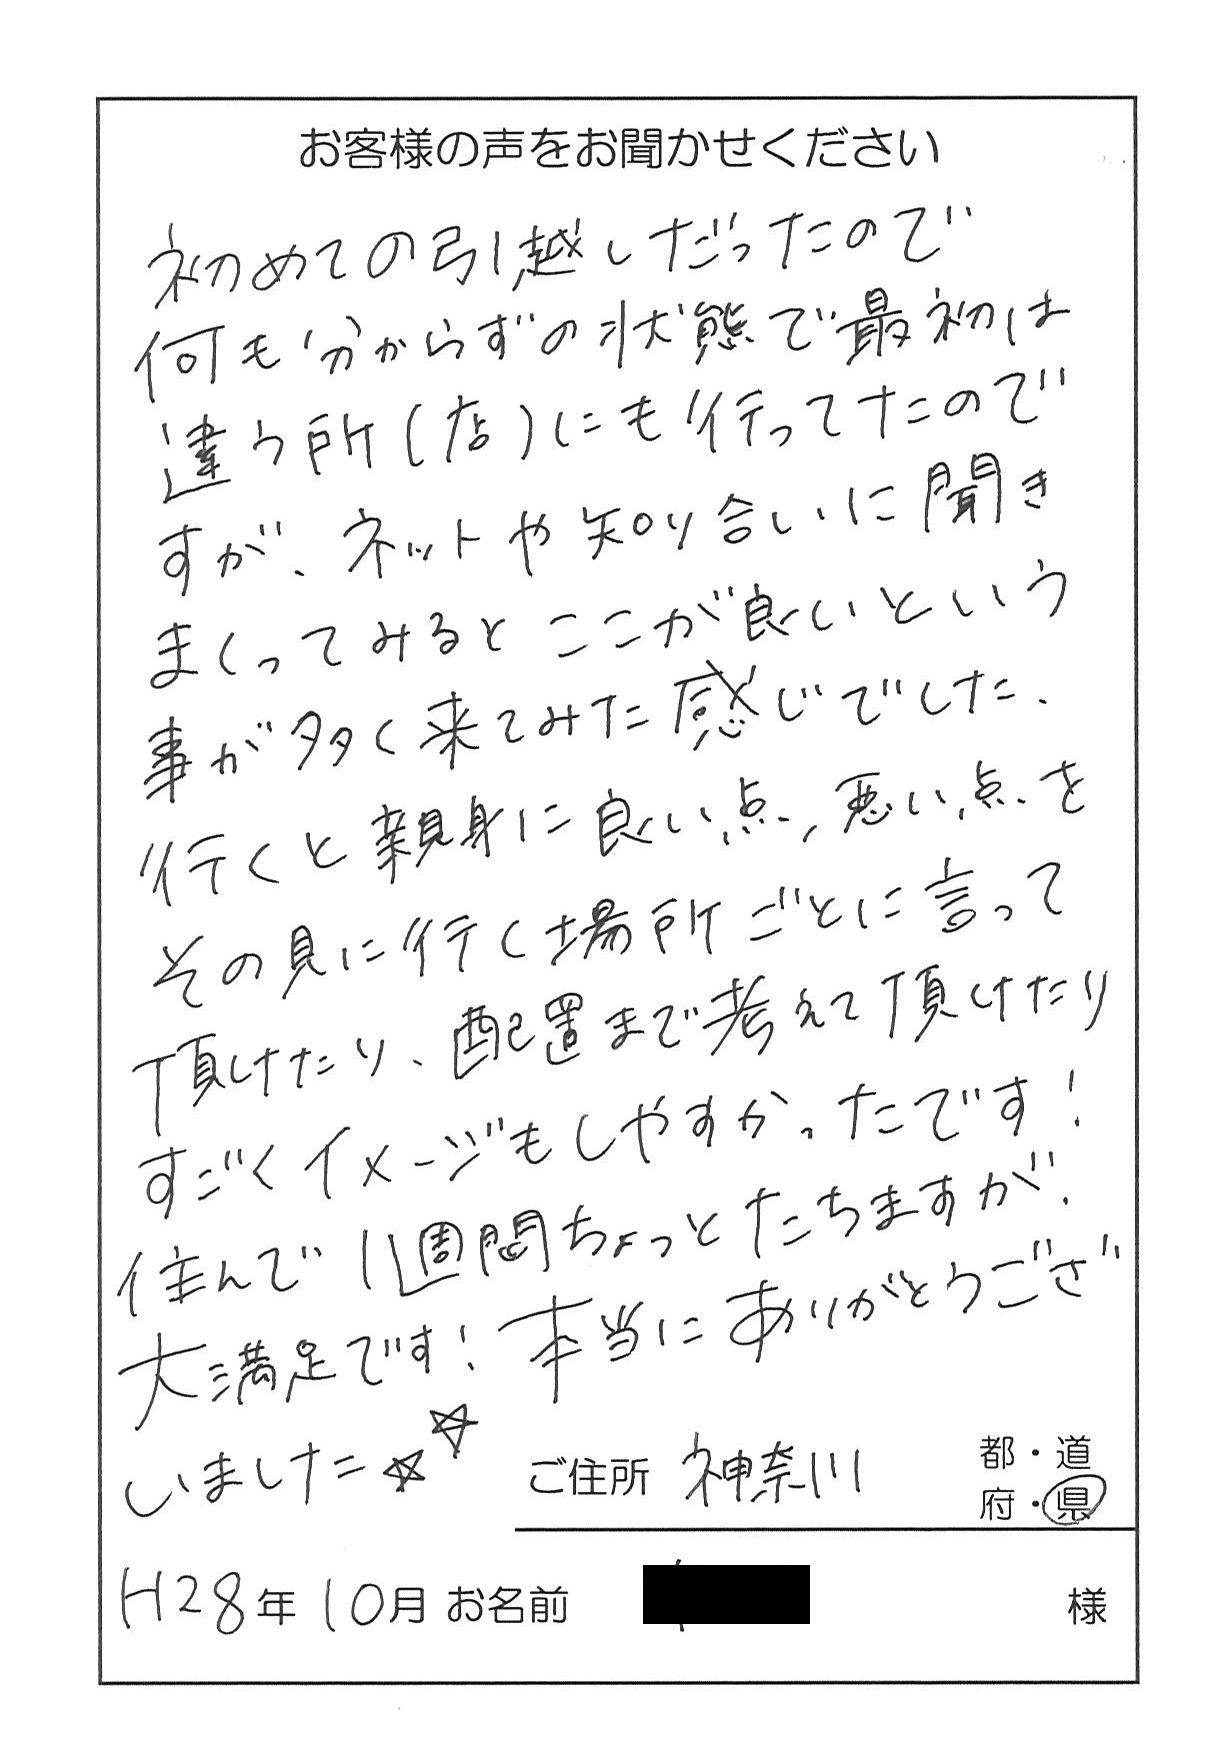 お客様の声をお聞かせください
初めての引越しだったので
何も分からずの状態で最初は
違う所(店)にも行ってたので
すが、ネットや知り合いに聞き
まくってみるとここが良いという
事が多く来てみた感じでした、
行くと親身に良い点、悪い点を
その見に行く場所ごとに言って
頂けたり、配置まで考えて頂けたり
すごくイメージもしやすかったです!
住んで1週間ちょっとたちますが、
大満足です!本当にありがとうござ
いました☆☆
ご住所 神奈川 都・道
府・県
H28年10月 お名前 様